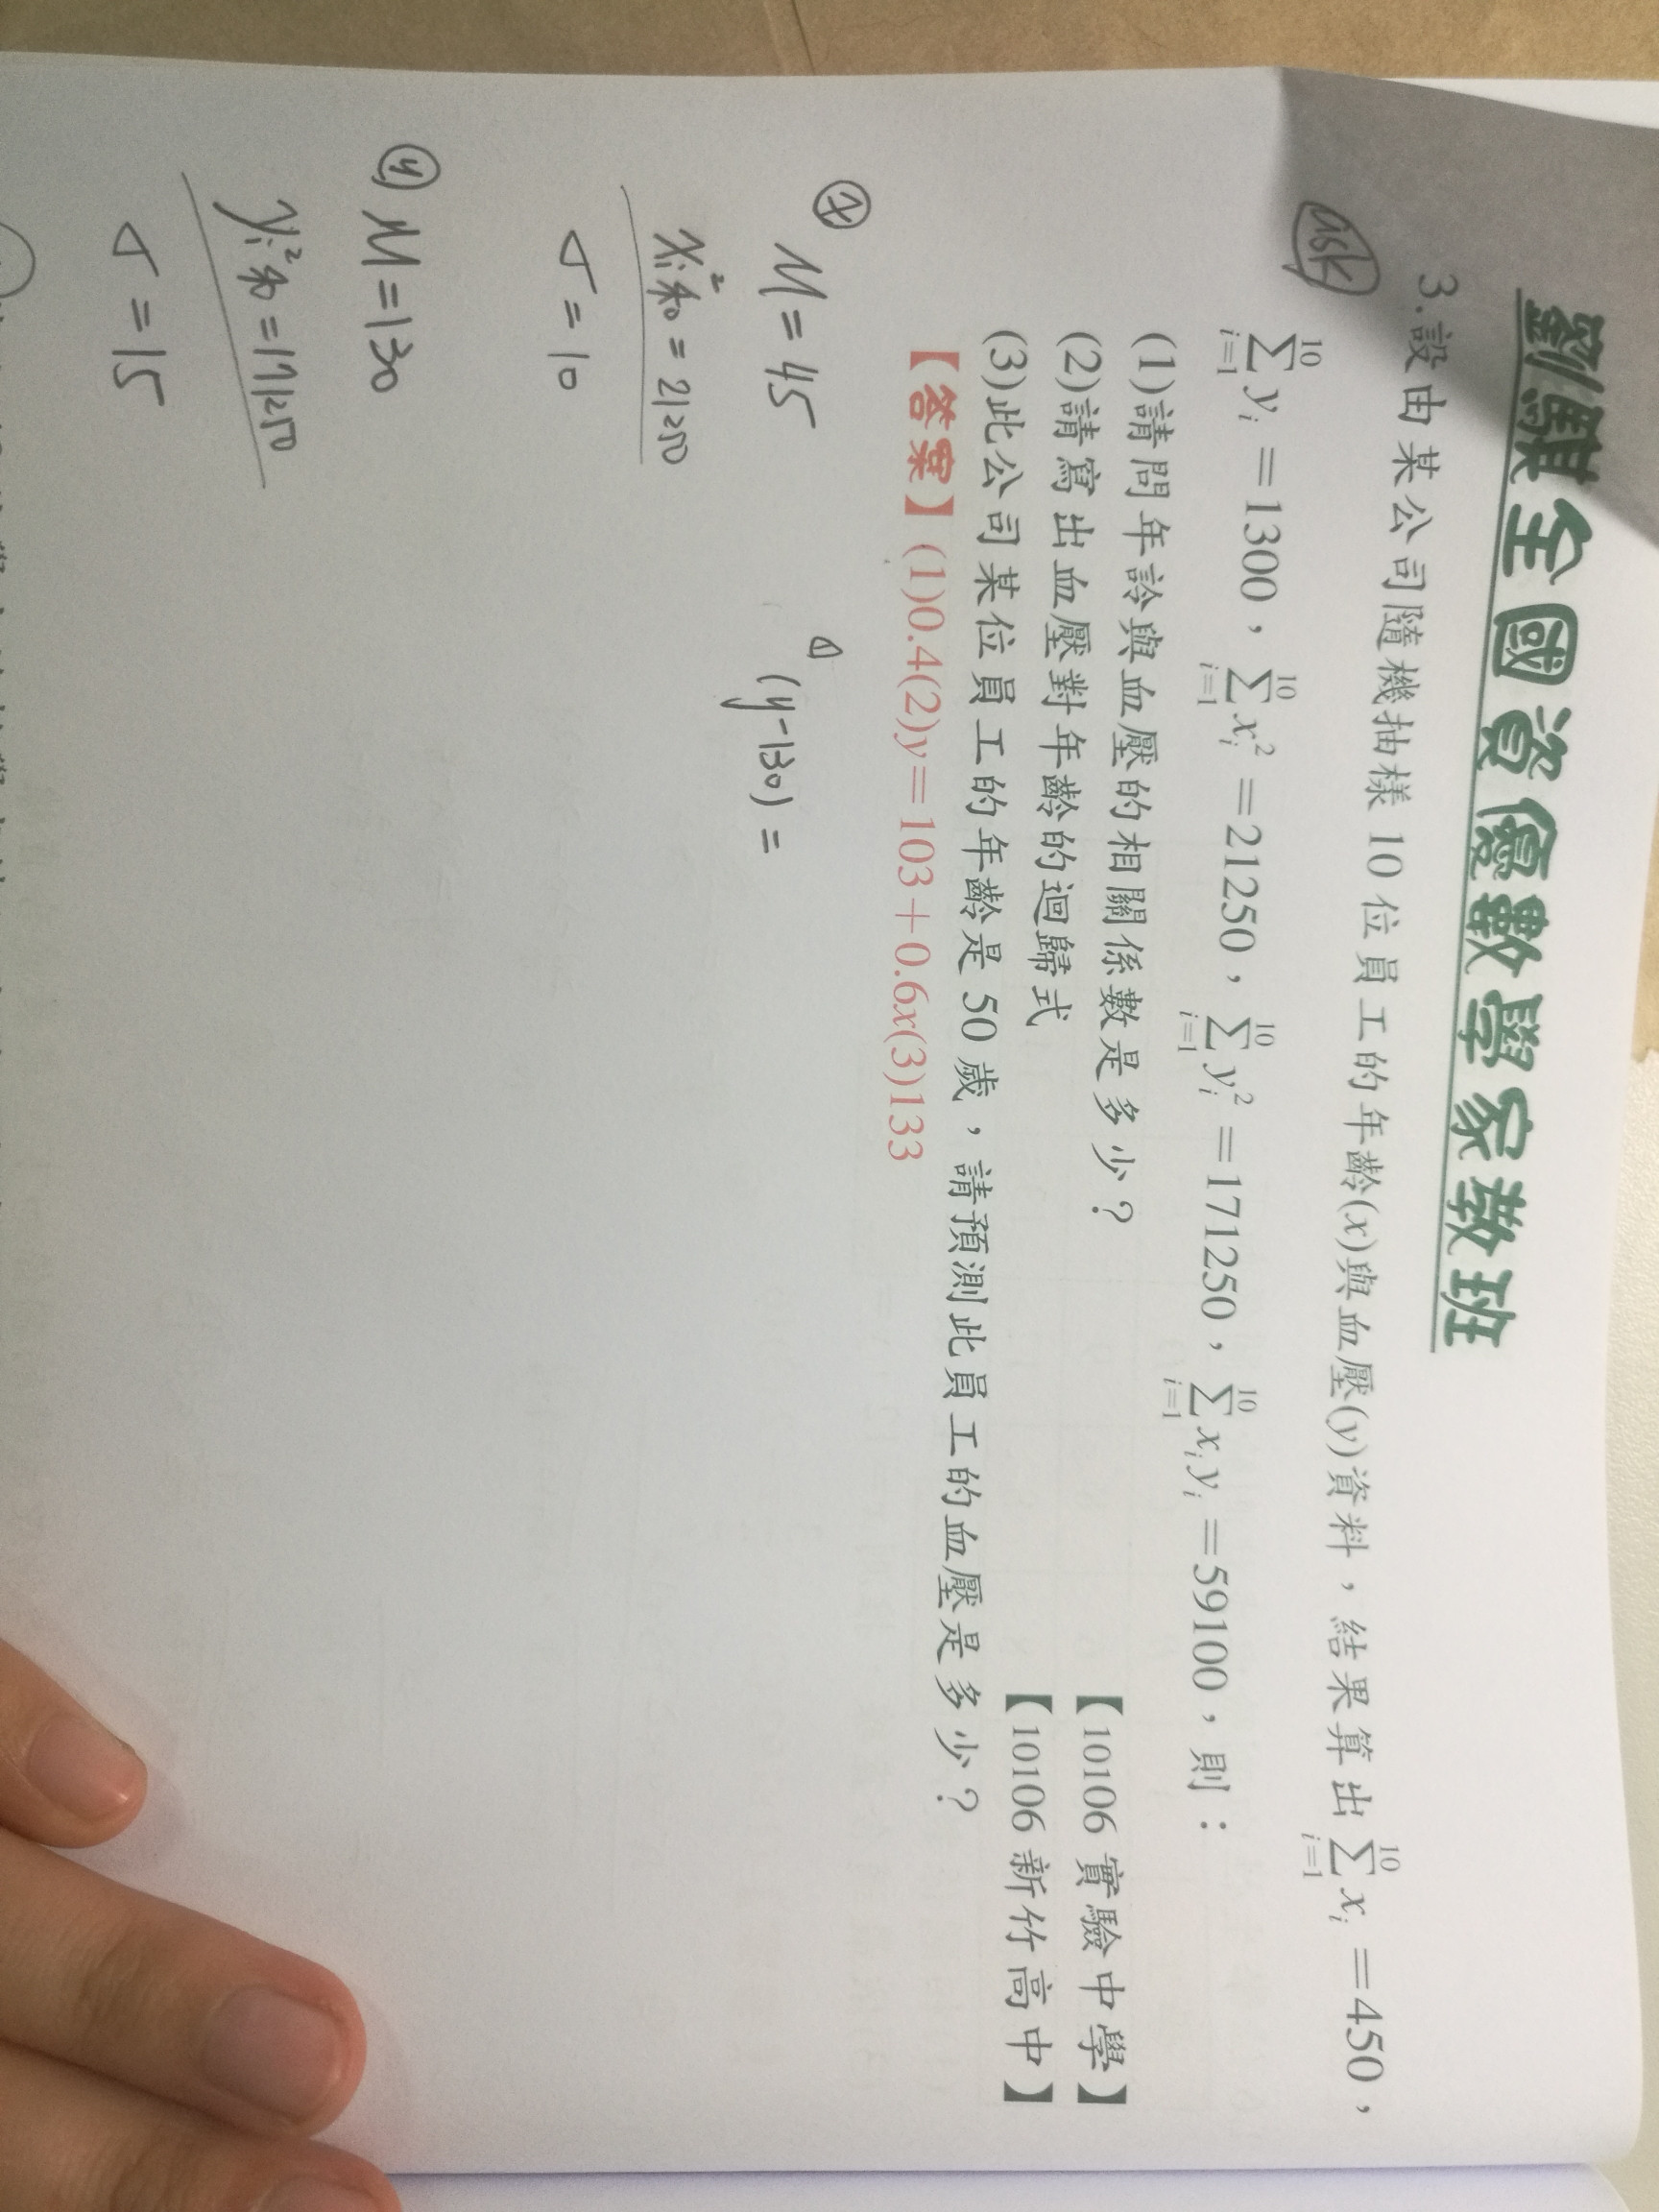 劉騏全國資優數學家教班
ask
3.設由某公司隨機抽樣 10 位員工的年齡(x)與血壓(y)資料，結果算出 \sum_{i=1}^{10} x_i =450，
\sum_{i=1}^{10} y_i =1300，\sum_{i=1}^{10} x_i^2 =21250，\sum_{i=1}^{10} y_i^2 =171250，\sum_{i=1}^{10} x_i y_i =59100，則：
(1)請問年齡與血壓的相關係數是多少？ 【10106 實驗中學】
(2)請寫出血壓對年齡的迴歸式 【10106 新竹高中】
(3)此公司某位員工的年齡是 50 歲，請預測此員工的血壓是多少？
【答案】(1)0.4(2)y＝103＋0.6x(3)133
x
M = 45
x_i^2和 = 21250
σ = 10
(y-130) =
y M = 130
y_i^2和 = 171250
σ = 15